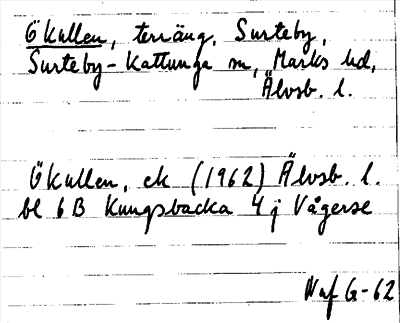 Ökullen, terräng, Surteby,
Surteby-Kattunga sn, Marks hd,
Älvsb. l.
Ökullen, ek (1962) Älvsb. l.
bl 6B Kungsbacka 4 j Vågerse
Naf G-62